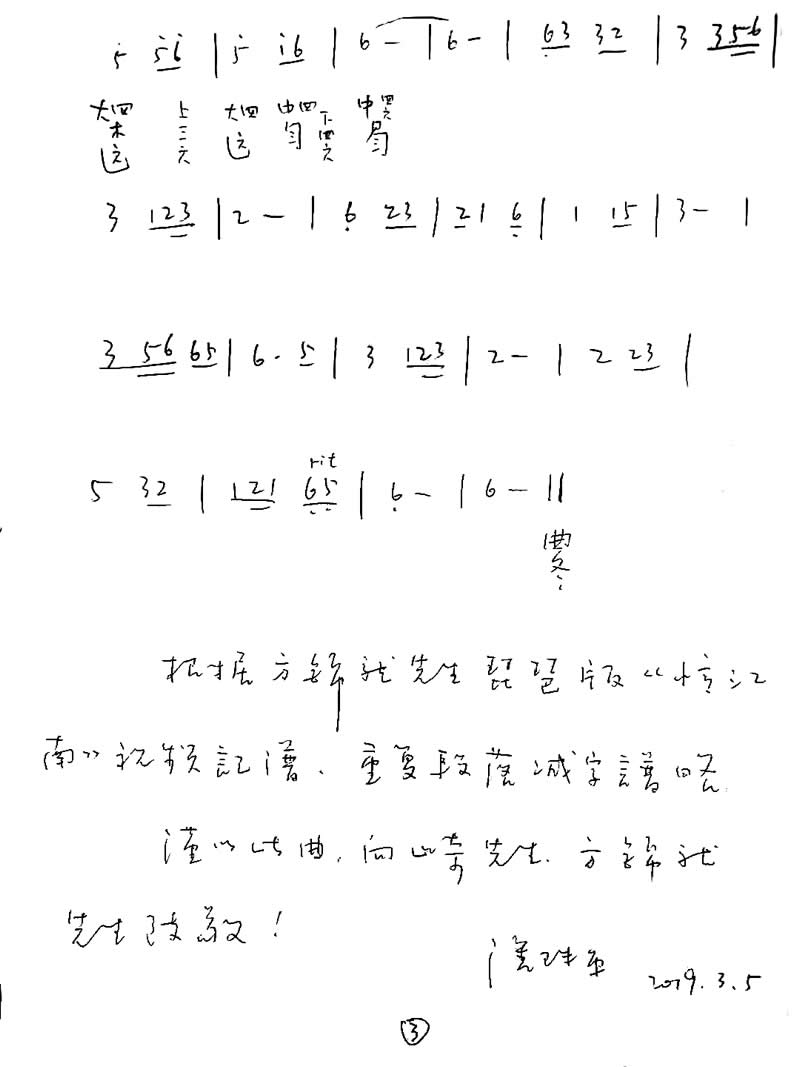 5 56 | 5 i6 | 6 - | 6 - | 63 32 | 3 356 |
3 123 | 2 - | 6 23 | 21 6 | 1 15 | 3 - |
3 56 65 | 6. 5 | 3 123 | 2 - | 2 23 |
rit
5 32 | 121 65 | 6 - | 6 - ||
曲终
根据方錦龙先生琵琶版《忆江
南》视频記譜、重复段落减字譜略
謹以此曲,向山奇先生、方錦龙
先生致敬!
2019.3.5
③